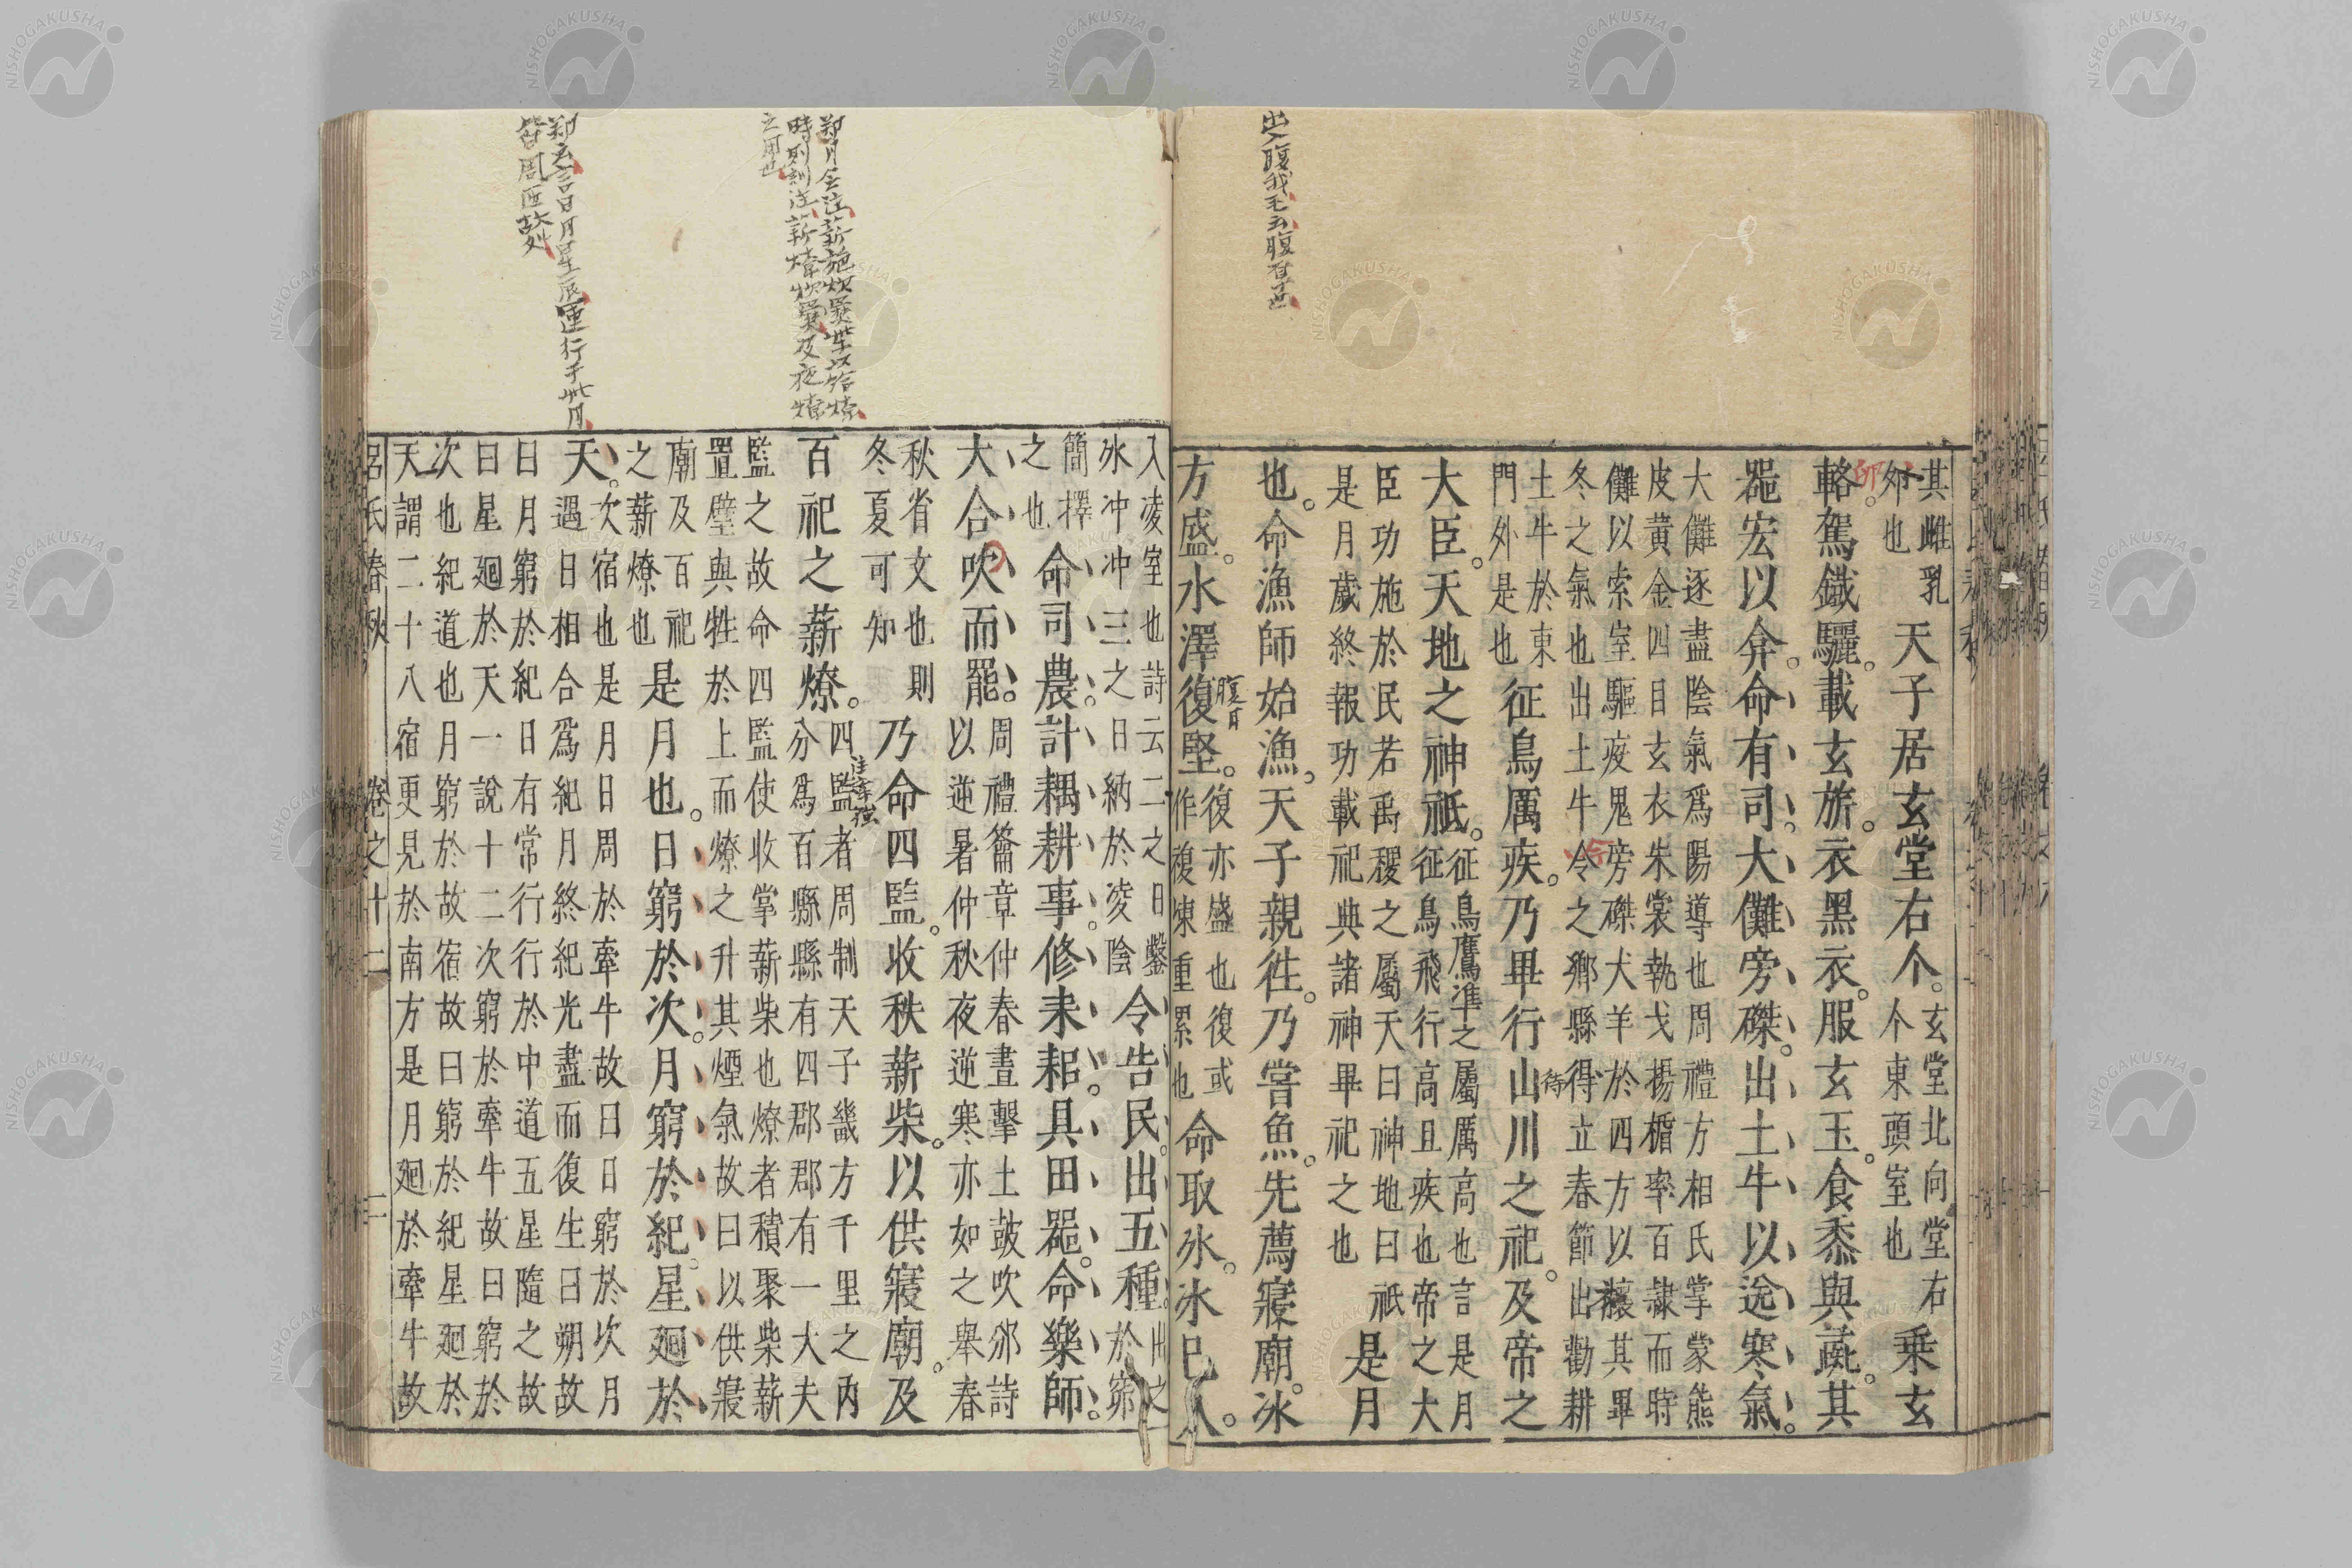 出入腹我毛云腹厚也
其雌乳
夘也
卵
天子居玄堂右个。
玄堂北向堂右
个東頭室也
乗玄
輅。駕鐵驪。載玄旂。衣黑衣。服玄玉。食黍與彘。其
噐宏以弇。命有司。大儺旁磔。出土牛以送寒氣。
大儺逐盡陰氣爲陽導也周禮方相氏掌蒙熊
皮黄金四目玄衣朱裳執戈揚楯率百隷而時
儺以索室驅疫鬼旁磔犬羊於四方以禳其畢
冬之氣也出土牛令之鄉縣得立春節出勸耕
待
土牛於東
門外是也
征鳥厲疾。乃畢行山川之祀。及帝之
大臣。天地之神祇。
征鳥鷹準之屬厲高也言是月
征鳥飛行高且疾也帝之大
臣功施於民若禹稷之屬天曰神地曰祇
是月歲終報功載祀典諸神畢祀之也
是月
也。命漁師始漁。天子親徃。乃嘗魚。先薦寢廟。氷
方盛。水澤復堅。
復亦盛也復或
作複凍重累也
命取氷。氷已入。
鄭月令注薪施炊爨柴以給燎
時則訓注薪燎炊爨及夜燎
之用也
鄭云言日月星辰運行于此月
皆周匝故処
入凌室也詩云二之日鑿
氷冲冲三之日納於凌陰
令告民。出五種。
出之
於窮
簡擇
之也
命司農。計耦耕事。修耒耜。具田噐。命樂師。
大合吹而罷。
周禮籥章仲春晝擊土鼓吹邠詩
以逆暑仲秋夜逆寒亦如之舉春
秋省文也則
冬夏可知
乃命四監。收秩薪柴。以供寢廟。及
百祀之薪燎。
四監者周制天子畿方千里之内
分爲百縣縣有四郡郡有一大夫
監之故命四監使收掌薪柴也燎者積聚柴薪
置璧與牲於上而燎之升其煙氣故曰以供寢
廟及百祀
之薪燎也
是月也。日窮於次。月窮於紀。星廻於
天。
次宿也是月日周於牽牛故曰日窮於次月
遇日相合爲紀月終紀光盡而復生曰朔故
日月窮於紀日有常行行於中道五星隨之故
曰星廻於天一說十二次窮於牽牛故曰窮於
次也紀道也月窮於故宿故曰窮於紀星廻於
天謂二十八宿更見於南方是月廻於牽牛故
呂氏春秋 卷之十二 二